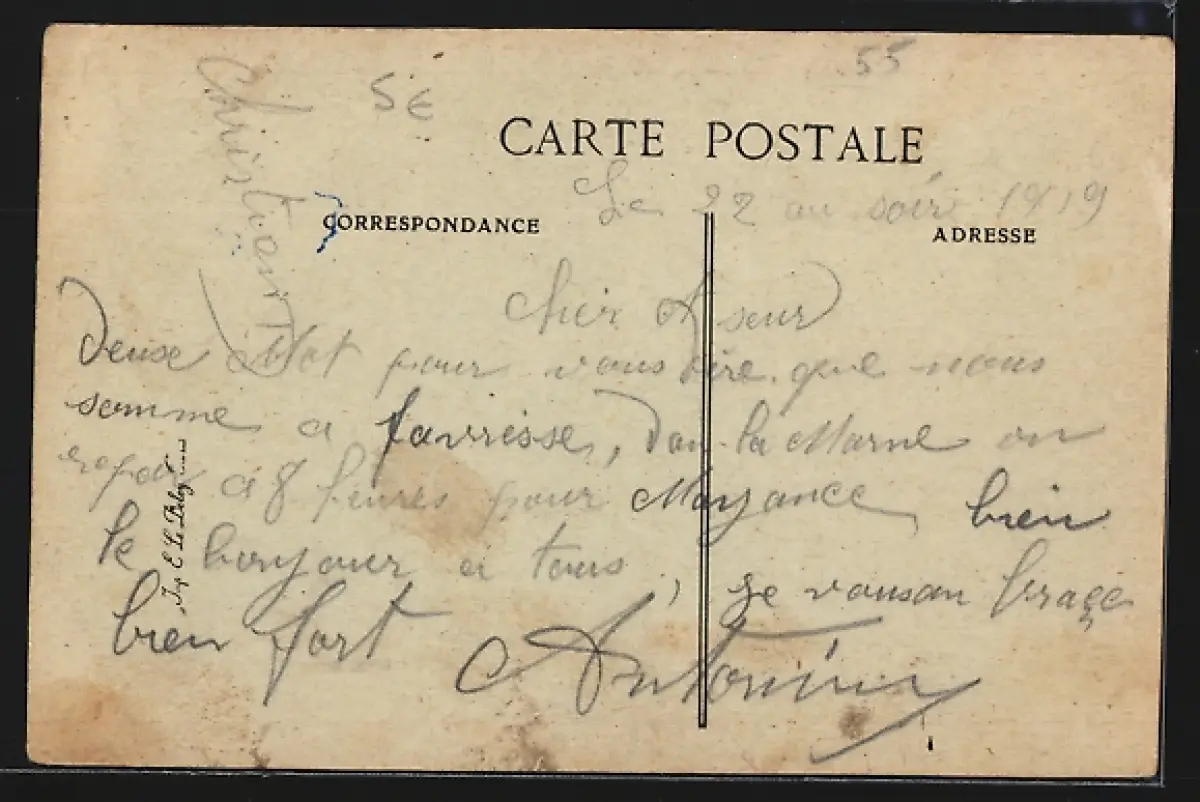 55
5€
CARTE POSTALE
Le 22 au soir 1919
CORRESPONDANCE
ADRESSE
Cher seur
Deuse Mot pour vous dire que nous
somme a favresse, Dan la Marne on
a 8 heures pour Mayance bien
le bonjour a tous, je vousan brage
bien fort
Antonin
Imp E Le